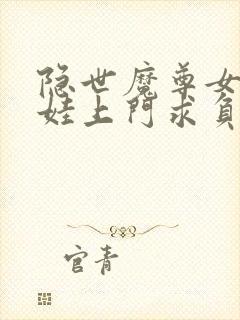 隐世魔尊女
娃上門求負
官青